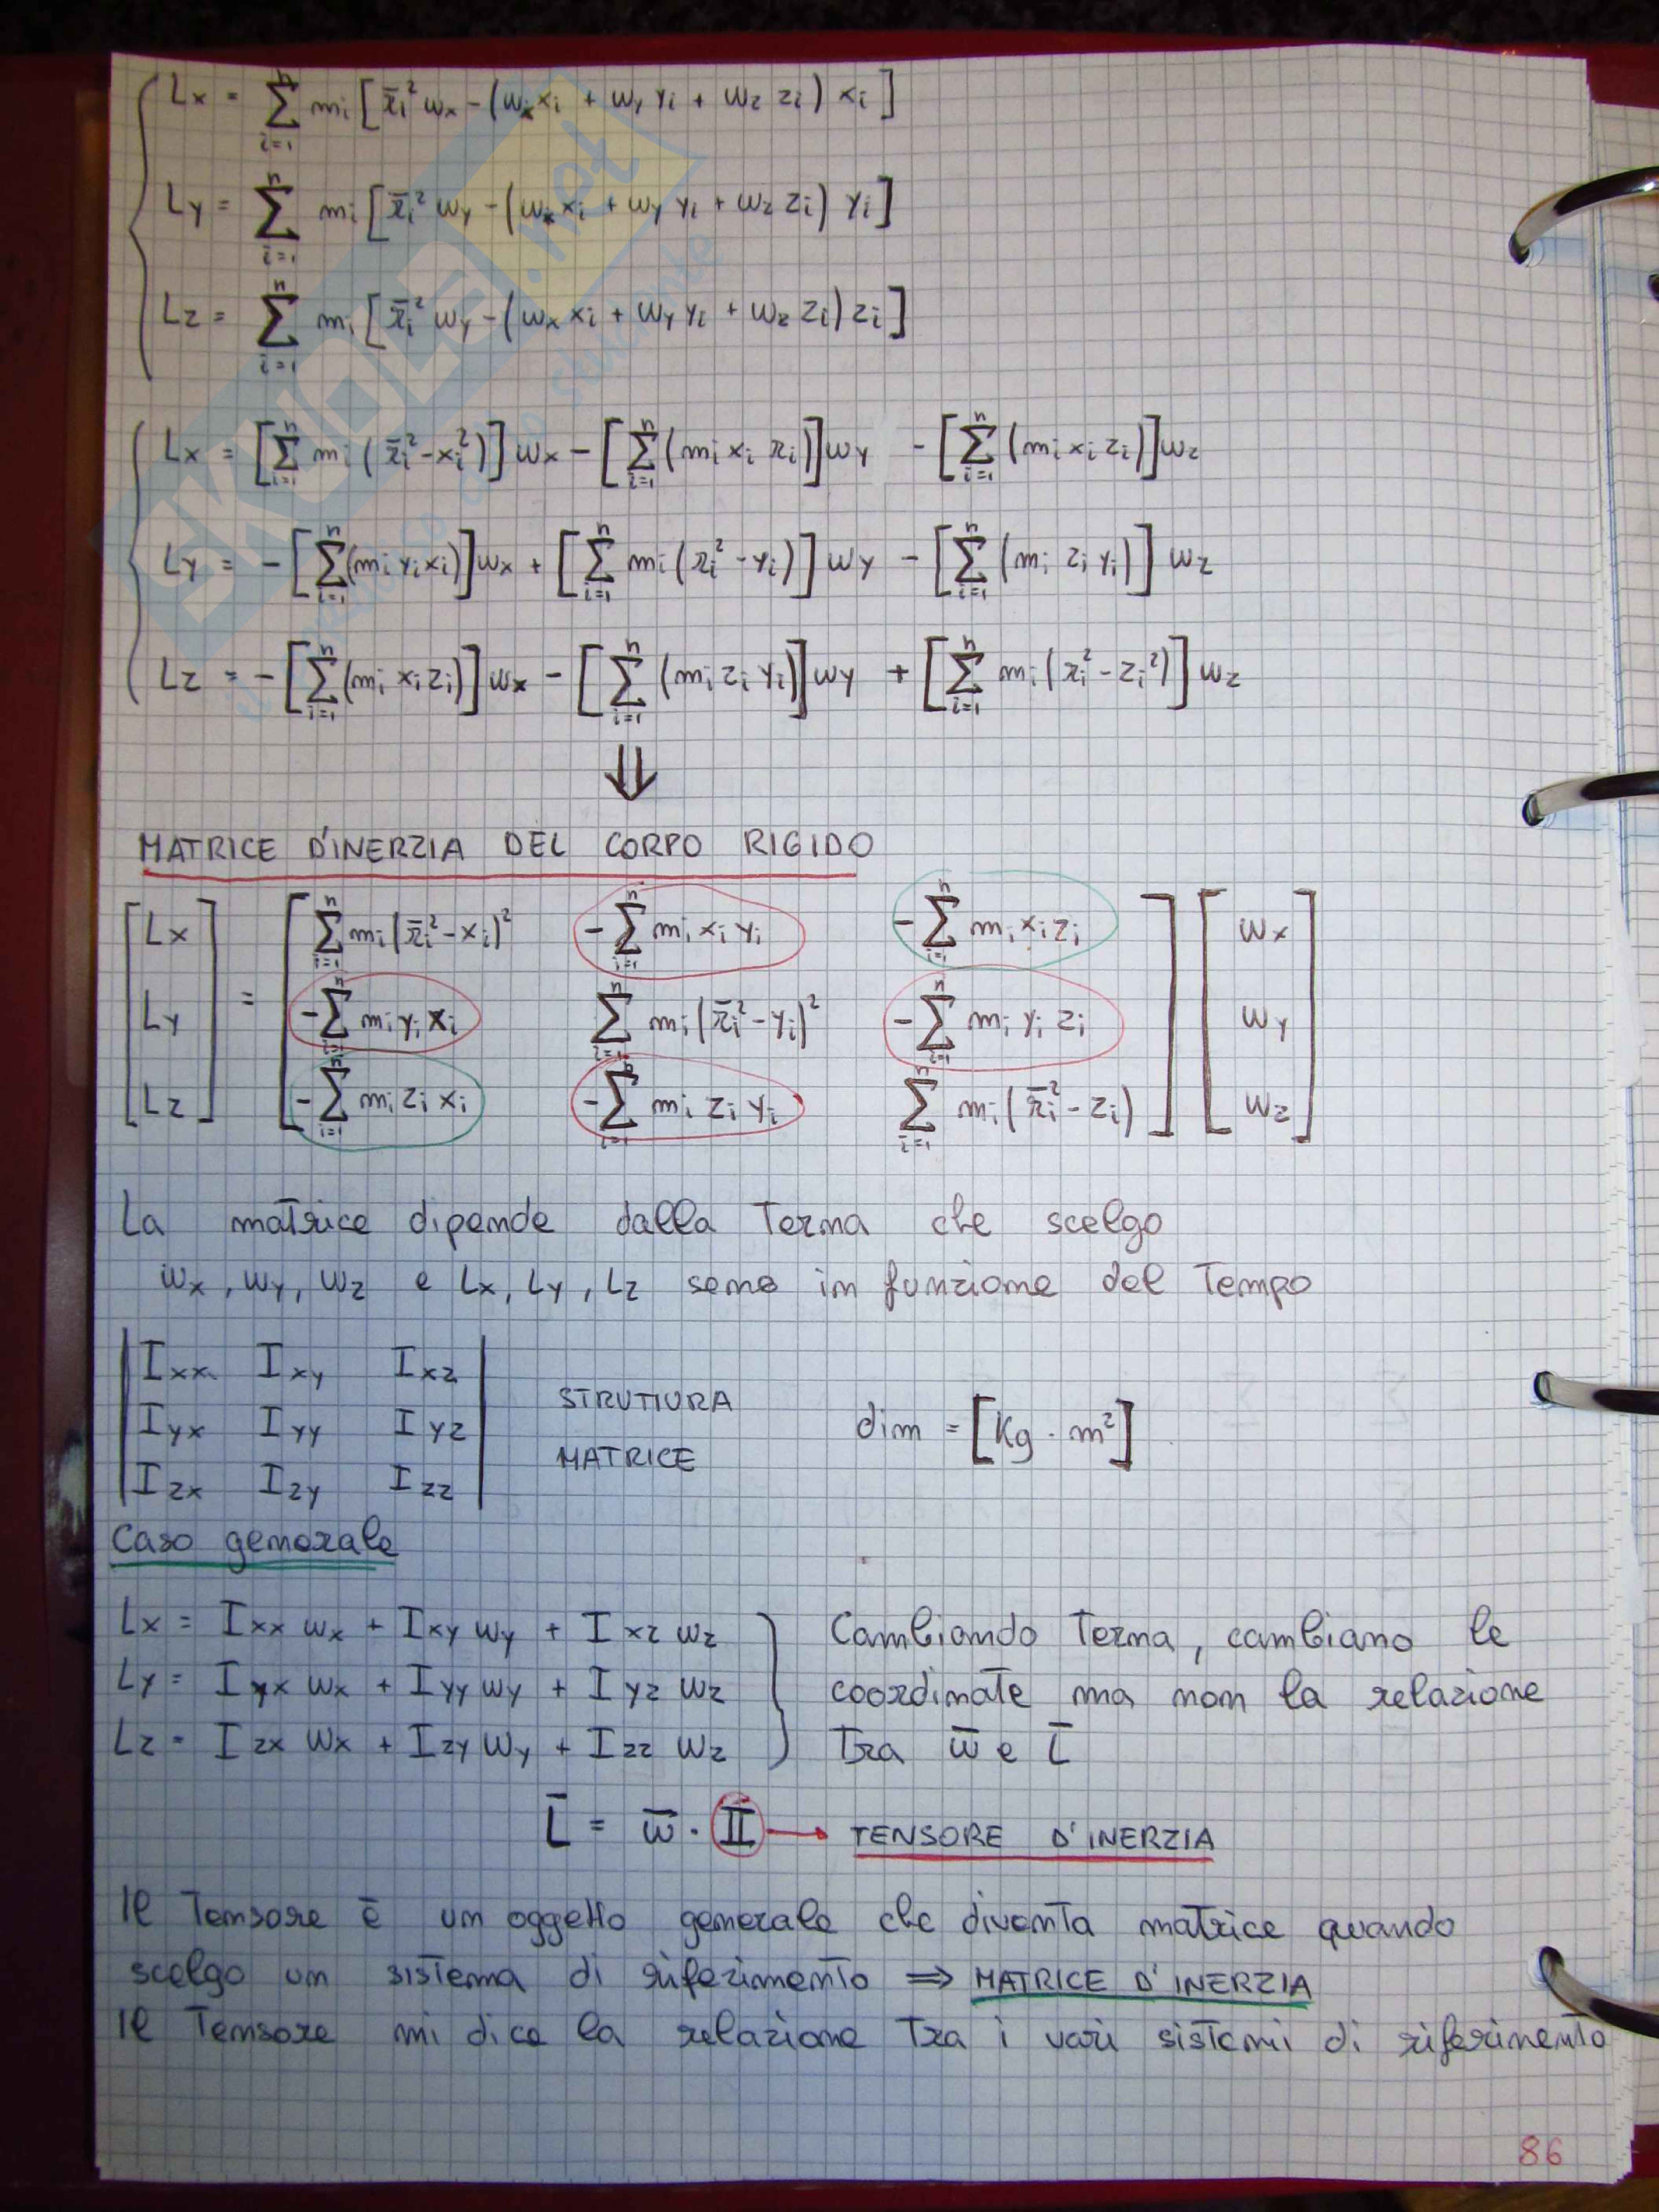 Lx = Σ_{i=1}^{n} mi [r̄i² wx - (wx xi + wy yi + wz zi) xi]
Ly = Σ_{i=1}^{n} mi [r̄i² wy - (wx xi + wy yi + wz zi) yi]
Lz = Σ_{i=1}^{n} mi [r̄i² wy - (wx xi + wy yi + wz zi) zi]
Lx = [Σ_{i=1}^{n} mi (r̄i² - xi²)] wx - [Σ_{i=1}^{n} (mi xi ri)] wy - [Σ_{i=1}^{n} (mi xi zi)] wz
Ly = - [Σ_{i=1}^{n} (mi yi xi)] wx + [Σ_{i=1}^{n} mi (ri² - yi)] wy - [Σ_{i=1}^{n} (mi zi yi)] wz
Lz = - [Σ_{i=1}^{n} (mi xi zi)] wx - [Σ_{i=1}^{n} (mi zi yi)] wy + [Σ_{i=1}^{n} mi (ri² - zi²)] wz
⇓
MATRICE D'INERZIA DEL CORPO RIGIDO
[Lx] [Σ_{i=1}^{n} mi (r̄i² - xi)² - Σ_{i=1}^{n} mi xi yi - Σ_{i=1}^{n} mi xi zi] [wx]
[Ly] = [- Σ_{i=1}^{n} mi yi xi Σ_{i=1}^{n} mi (r̄i² - yi)² - Σ_{i=1}^{n} mi yi zi] [wy]
[Lz] [- Σ_{i=1}^{n} mi zi xi - Σ_{i=1}^{n} mi zi yi Σ_{i=1}^{n} mi (r̄i² - zi)] [wz]
La matrice dipende dalla terna che scelgo
wx, wy, wz e Lx, Ly, Lz sono in funzione del tempo
| Ixx Ixy Ixz |
| Iyx Iyy Iyz |
| Izx Izy Izz |
STRUTTURA
MATRICE
dim = [Kg · m²]
Caso generale
Lx = Ixx wx + Ixy wy + Ixz wz
Ly = Iyx wx + Iyy wy + Iyz wz
Lz = Izx wx + Izy wy + Izz wz
Cambiando terna, cambiano le
coordinate ma non la relazione
tra w̄ e L̄
L̄ = w̄ · II → TENSORE D'INERZIA
Il tensore è un oggetto generale che diventa matrice quando
scelgo un sistema di riferimento ⇒ MATRICE D'INERZIA
Il tensore mi dice la relazione tra i vari sistemi di riferimento
86
SKUOLA.net